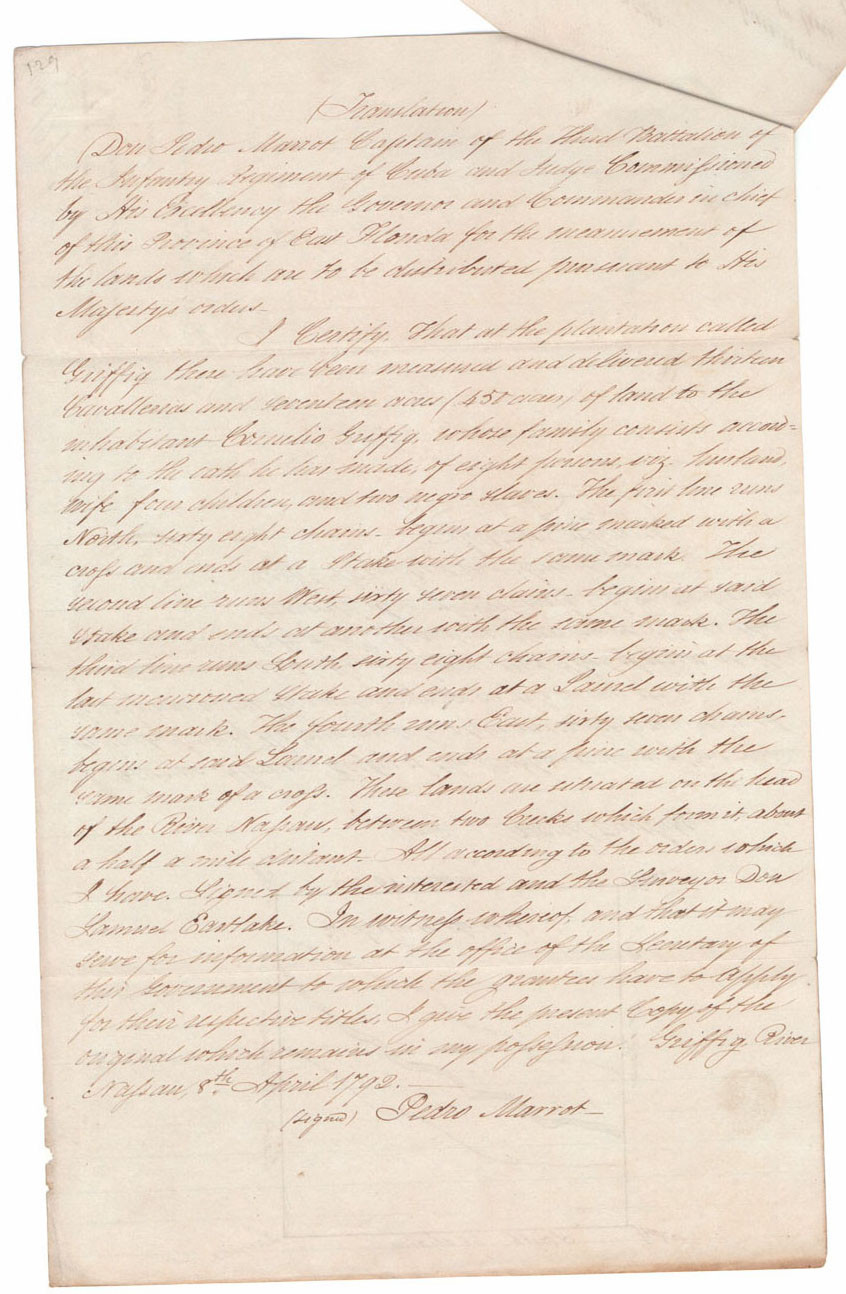 127
(Translation)
Don Pedro Marrot Captain of the third Battalion of
the Infantry Regiment of Cuba and Judge Commissioned
by His Excellency the Governor and Commander in chief
of this Province of East Florida for the meanurement of
the lands which are to be distributed pursuant to His
Majesty's orders.
I Certify. That at the plantation called
Griffig there have been measured and delivered thirteen
Cavallerias and seventeen acres (450 acres) of land to the
inhabitant Cornelio Griffig, whose family consists accord=
ing to the oath he has made, of eight persons, viz. husband,
wife four children, and two negro slaves. The first line runs
North, sixty eight chains - begins at a pine marked with a
cross and ends at a stake with the same mark. The
second line runs West, sixty seven chains - begins at said
stake and ends at another with the same mark. The
third line runs South, sixty eight chains - begins at the
last mentioned stake and ends at a Laurel with the
same mark. The fourth runs East, sixty seven chains,
begins at said Laurel and ends at a pine with the
same mark of a cross. These lands are situated on the head
of the River Nassau, between two Creeks which form it, about
a half a mile distant - All according to the orders which
I have. Signed by the interested and the Surveyor Don
Samuel Eastlake. In witness whereof, and that it may
serve for information at the office of the Secretary of
this Government to which the grantees have to apply
for their respective titles, I give the present Copy of the
original which remains in my possession. Griffig River
Nassau, 8th April 1792.
(signed) Pedro Marrot